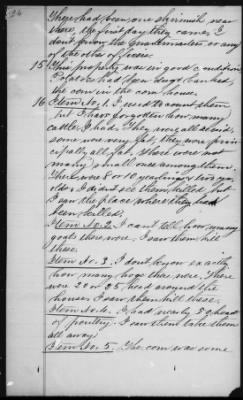 There had been one skirmish near
there, the first day they came. I
don't know the Quartermaster or any
of the other officers.
15 This property was in good condition
Potatoes had been dug & banked,
the corn in the corn house.
16 Item No. 1. I used to count them
but I have forgotten how many
cattle I had. They were all around,
some was very fat, they were
all fat. There were not
many small ones among them.
There were 8 or 10 yearlings & two year
olds. I didn't see them killed but
I saw the place where they had
been killed.
Item No. 2. I can't tell how many
goats there were. I saw them kill
these.
Item No. 3. I don't know exactly
how many hogs there were. There
were 20 or 25 head around the
house. I saw them kill these.
Item No. 4. I had nearly 50 head
of poultry. I saw them take them
all away.
Item No. 5. The corn was some